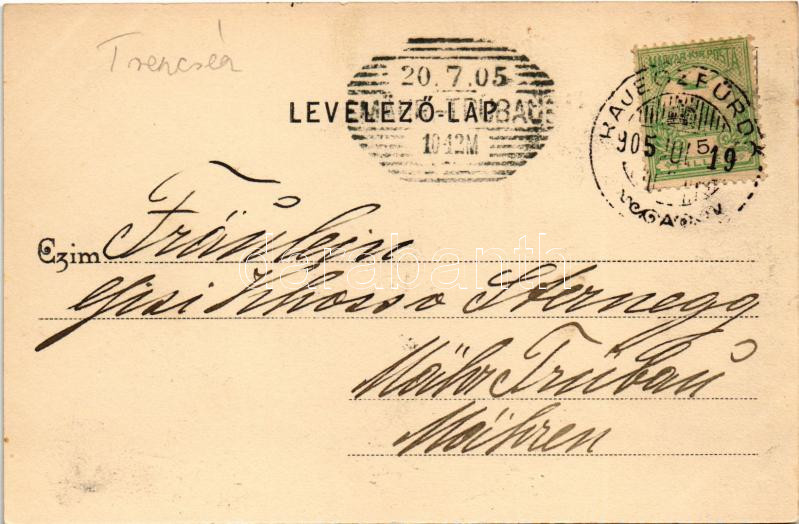 Trencsén
20.7.05
LEVELEZŐ-LAP
MÄHR. TRÜBAU
10-12M
MAGYAR KIR. POSTA
5
RAJECZFÜRDŐ
905 JUL 19
Czim Fräulein
Gisi v Sternegg
Mähr Trübau
Mähren
darabanth